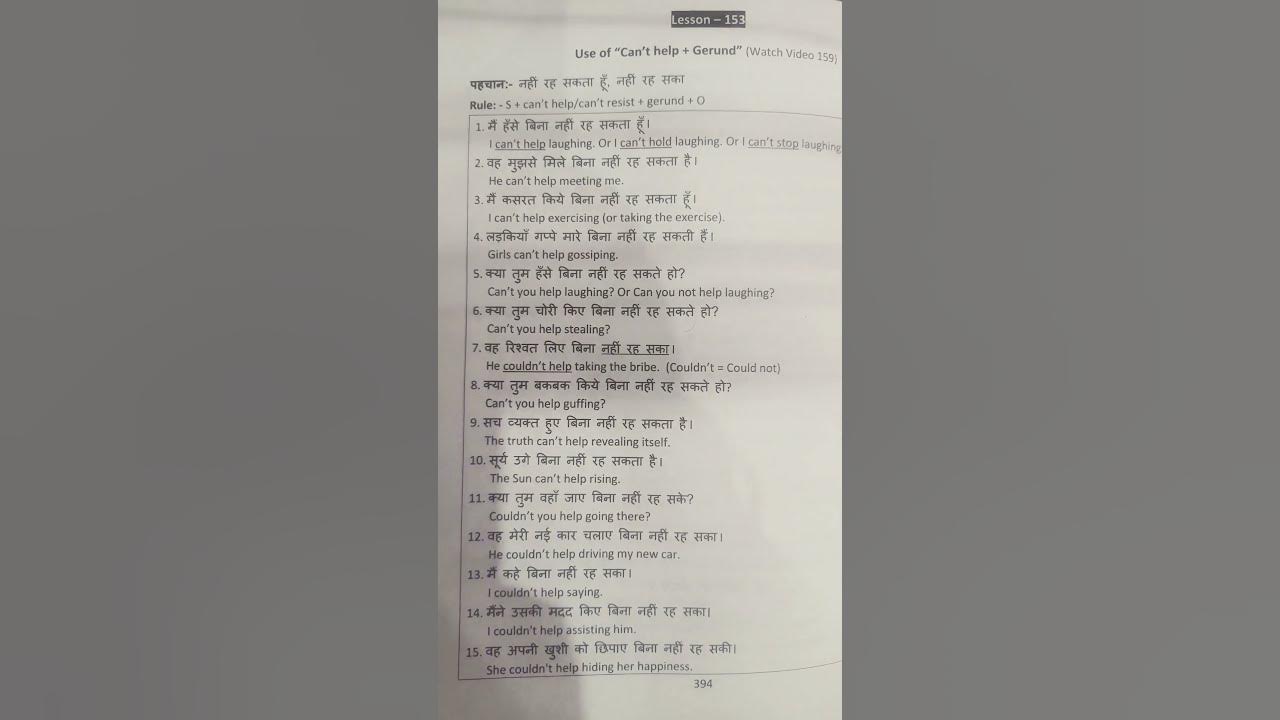 Lesson – 153
Use of “Can’t help + Gerund” (Watch Video 159)
पहचान:- नहीं रह सकता हूँ, नहीं रह सका
Rule: - S + can’t help/can’t resist + gerund + O
1. मैं हँसे बिना नहीं रह सकता हूँ।
I can’t help laughing. Or I can’t hold laughing. Or I can’t stop laughing
2. वह मुझसे मिले बिना नहीं रह सकता है।
He can’t help meeting me.
3. मैं कसरत किये बिना नहीं रह सकता हूँ।
I can’t help exercising (or taking the exercise).
4. लड़कियाँ गप्पे मारे बिना नहीं रह सकती हैं।
Girls can’t help gossiping.
5. क्या तुम हँसे बिना नहीं रह सकते हो?
Can’t you help laughing? Or Can you not help laughing?
6. क्या तुम चोरी किए बिना नहीं रह सकते हो?
Can’t you help stealing?
7. वह रिश्वत लिए बिना नहीं रह सका।
He couldn’t help taking the bribe. (Couldn’t = Could not)
8. क्या तुम बकबक किये बिना नहीं रह सकते हो?
Can’t you help guffing?
9. सच व्यक्त हुए बिना नहीं रह सकता है।
The truth can’t help revealing itself.
10. सूर्य उगे बिना नहीं रह सकता है।
The Sun can’t help rising.
11. क्या तुम वहाँ जाए बिना नहीं रह सके?
Couldn’t you help going there?
12. वह मेरी नई कार चलाए बिना नहीं रह सका।
He couldn’t help driving my new car.
13. मैं कहे बिना नहीं रह सका।
I couldn’t help saying.
14. मैंने उसकी मदद किए बिना नहीं रह सका।
I couldn’t help assisting him.
15. वह अपनी खुशी को छिपाए बिना नहीं रह सकी।
She couldn’t help hiding her happiness.
394